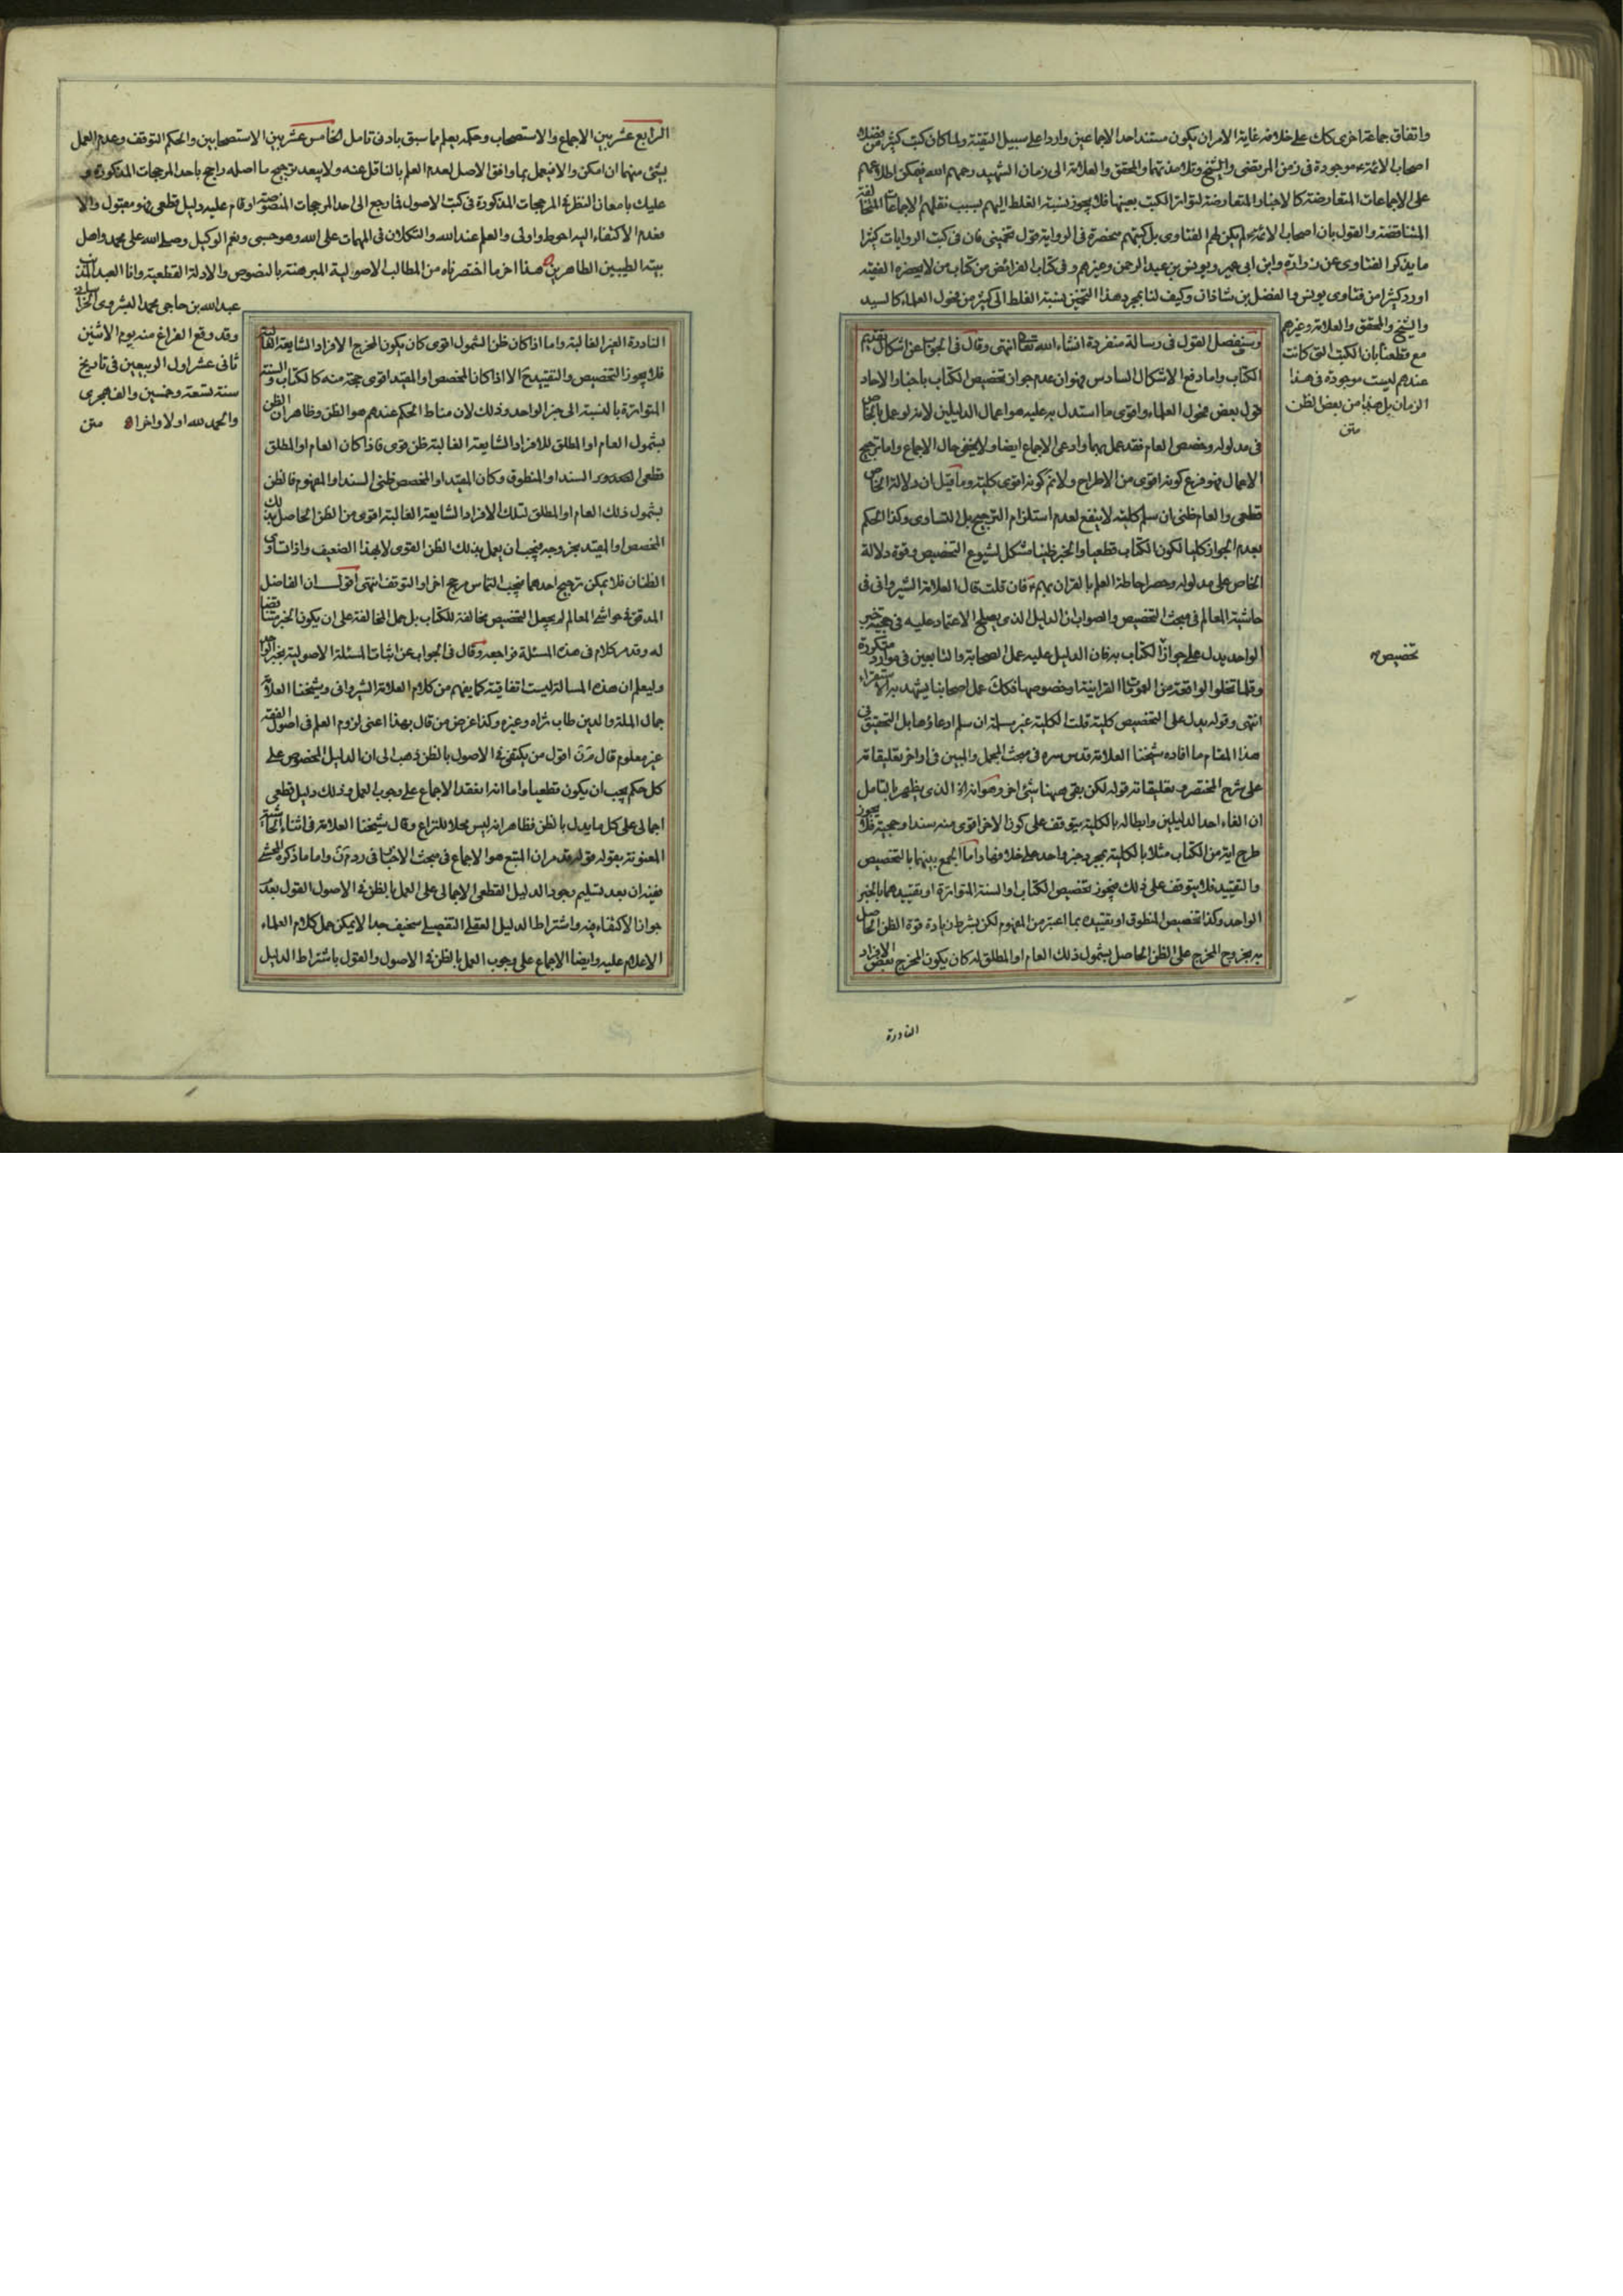 واتفاق جماعة اخرى كك على خلافه غاية الامر ان يكون مستند احد الاجماعين واردا على سبيل التقية ولما كان كتب كثير من فضلاء
اصحاب الائمة ع موجودة فى زمن المرتضى والشيخ وتلامذتهما والمحقق والعلامة الى زمان الشهيد رحمهم الله فيمكن اطلاعهم
على الاجماعات المتعارضة كالاخبار المتعارضة لتواتر الكتب بعينها فلا يجوز نسبة الغلط اليهم بسبب نقلهم الاجماعات المتخالفة
المتناقضة والقول بان اصحاب الائمة ع لم يكن لهم الفتاوى بل كتبهم منحصرة فى الرواية قول تخمينى فان فى كتب الروايات كثيرا
ما يذكر الفتاوى عن زرارة وابن ابى عمير ويونس بن عبد الرحمن وغيرهم وفى كتاب الفرائض من كتاب من لا يحضره الفقيه
اورد كثيرا من فتاوى يونس والفضل بن شاذان وكيف لنا بمجرد هذا التخمين نسبة الغلط الى كثير من فحول العلماء كالسيد
والشيخ والمحقق والعلامة وغيرهم
مع قطعنا بان الكتب التى كانت
عندهم ليست موجودة فى هذا
الزمان بل هذا من بعض الظن
متن
وسنفصل القول فى رسالة منفردة انشاء الله تعالى انتهى وقال فى الجواب عن اشكال تقديم
الكتاب واما دفع الاشكال السادس فهو ان عدم جواز تخصيص الكتاب باخبار الاحاد
قول بعض فحول العلماء واقوى ما استدل به عليه هو اعمال الدليلين لانه لو عمل بالخاص
فى مدلوله وخصص العام فقد عمل بهما وادعى الاجماع ايضا ولا يخفى حال الاجماع واما ترجيح
الاعمال فهو فرع كونه اقوى من الاطراح ولا نم كونه اقوى كلية وما قيل ان دلالة الخاص
قطعى والعام ظنى ان سلم كلية لا ينفع لعدم استلزام الترجيح بل التساوى وكذا الحكم
بعدم الجواز كليا لكون الكتاب قطعيا والخبر ظنيا مشكل لشيوع التخصيص وقوة دلالة
الخاص على مدلوله وحصر احاطة العلم بالقران بهم ع فان قلت قال العلامة الشيروانى فى
حاشية المعالم فى مبحث التخصيص والصواب ان الدليل الذى يصلح الاعتماد عليه فى حجية خبر
الواحد يدل على جواز الكتاب به فان الدليل عليه عمل الصحابة والتابعين فى موارد متكررة
تخصيص
وقلما تخلو الواقعة من العمومات القرانية وخصوصها فكك عمل اصحابنا يشهد به الاستقراء
انتهى وقوله يدل على التخصيص كلية قلت الكلية غير مسلمة ان سلم ادعاؤها بل التحقيق فى
هذا المقام ما افاده شيخنا العلامة قدس سره فى مبحث المجمل والمبين فى اواخر تعليقاته
على شرح المختصر من تعليقاته قوله لكن بقى ههنا شئ اخر وهو انه الذى يظهر بالتامل
ان الغاء احد الدليلين وابطاله بالكلية يتوقف على كون الاخر اقوى منه سندا وحجية فلا يجوز
طرح اية من الكتاب مثلا بالكلية بمجرد خبر واحد على خلافها واما الجمع بينهما بالتخصيص
والتقييد فلا يتوقف على ذلك فيجوز تخصيص الكتاب او السنة المتواترة او تقييدهما بالخبر
الواحد وكذا تخصيص المنطوق او تقييده بما اعتبر من المفهوم لكن بشرط زيادة قوة الظن الحاصل
به بخروج المخرج على الظن الحاصل بشمول ذلك العام او المطلق له كان يكون المخرج بعض الافراد
النادرة
الرابع عشر بين الاجماع والاستصحاب وحكمه يعلم مما سبق بادنى تامل الخامس عشر بين الاستصحابين والحكم التوقف وعدم العمل
بشئ منهما ان امكن والا فيعمل بما وافق الاصل لعدم العلم بالناقل عنه ولا يبعد ترجيح ما اصله راجح باحد المرجحات المذكورة و
عليك بامعان النظر فى المرجحات المذكورة فى كتب الاصول فما رجع الى احد المرجحات المنصوصة او قام عليه دليل قطعى فهو مقبول والا
فعدم الاكتفاء اليه احوط واولى والعلم عند الله والتكلان فى المهمات على الله وهو حسبى ونعم الوكيل وصلى الله على محمد واهل
بيته الطيبين الطاهرين هذا اخر ما اختصرناه من المطالب الاصولية المبرهنة بالنصوص والادلة القطعية وانا العبد المذنب
عبد الله بن حاجى محمد البشروى الخراسانى
وقد وقع الفراغ منه يوم الاثنين
ثانى عشر اول الربيعين فى تاريخ
سنة تسعة وخمسين والف هجرى
والحمد لله اولا واخرا متن
النادرة الغير الغالبة واما اذا كان ظن الشمول اقوى كان يكون المخرج الافراد الشايعة الغالبة
فلا يجوز التخصيص والتقييد ح الا اذا كان المخصص او المقيد اقوى حجة منه كالكتاب والسنة
المتواترة بالنسبة الى خبر الواحد وذلك لان مناط الحكم عندهم هو الظن وظاهر ان الظن
بشمول العام او المطلق للافراد الشايعة الغالبة ظن قوى فاذا كان العام او المطلق
قطعى الصدور السند او المنطوق وكان المقيد او المخصص ظنى السند او المفهوم فالظن
بشمول ذلك العام او المطلق لتلك الافراد الشايعة الغالبة اقوى من الظن الحاصل بذلك
المخصص او المقيد بخروجه فيجب ان يعمل بذلك الظن القوى لا بهذا الضعيف واذا تساوى
الظنان فلا يمكن ترجيح احدهما فيجب التماس مرجح اخر او التوقف انتهى اقول ان الفاضل
المدقق فى حواشى المعالم لم يجعل التخصيص مخالفة للكتاب بل حمل المخالفة على ان يكون الخبر مناقضا
له وقد مر كلام فى هذه المسئلة فراجعه وقال فى الجواب عن اثبات المسئلة الاصولية بخبر الواحد
وليعلم ان هذه المسالة ليست اتفاقية كما يفهم من كلام العلامة الشيروانى وشيخنا العلامة
جمال الملة والدين طاب ثراه وغيره وكذا غرض من قال بهذا اعنى لزوم العلم فى اصول الفقه
غير معلوم قال اقول من يكتفى فى الاصول بالظن ذهب الى ان الدليل المخصوص على
كل حكم يجب ان يكون قطعيا واما انه انعقد الاجماع على وجوب العمل وذلك دليل قطعى
اجمالى على كل ما يدل بالظن فظاهر انه ليس محلا للنزاع وقال شيخنا العلامة فى اثناء الحاشية
المعنونة بقوله قوله قد مر ان المتبع هو الاجماع فى مبحث الاخبار واما ما ذكره المحشى
ففيه ان بعد تسليم وجود الدليل القطعى الاجمالى على العمل بالظن فى الاصول القول بعدم
جواز الاكتفاء فيه واشتراط الدليل العقلى التفصيلى سخيف جدا لا يمكن حمل كلام العلماء
الاعلام عليه وايضا الاجماع على وجوب العمل بالظن فى الاصول والقول باشتراط الدليل